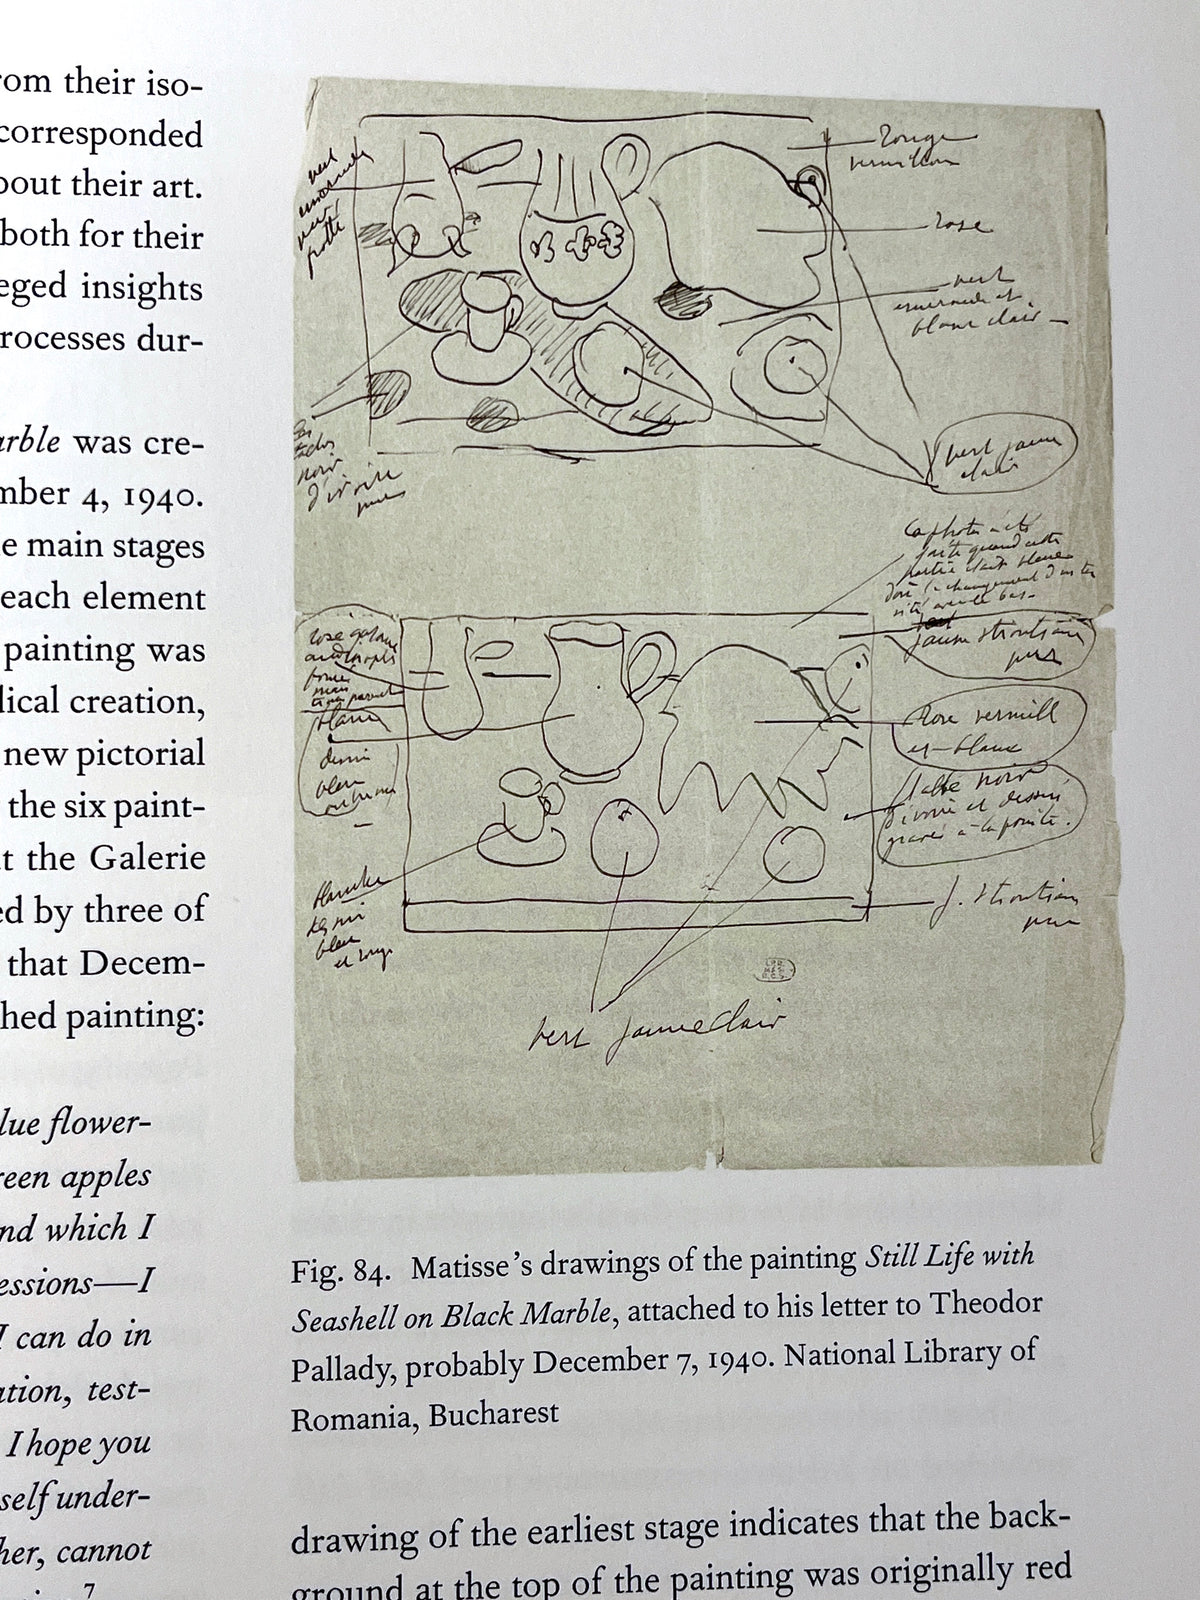 rom their iso-
corresponded
bout their art.
both for their
eged insights
rocesses dur-
arble was cre-
mber 4, 1940.
e main stages
each element
painting was
dical creation,
new pictorial
the six paint-
t the Galerie
ed by three of
that Decem-
hed painting:
lue flower-
reen apples
nd which I
essions—I
I can do in
ation, test-
I hope you
self under-
her, cannot
7
Rouge
vermillon
rose
vert
émeraude et
blanc clair
vert jaune
clair
noir
d'ivoire
pur
La photo a été
faite quand cette
partie était blanche
d'où le changement
jaune strontium
pur
Rose vermill
et blanc
table noir
d'ivoire et dessin
gravés à la pointe.
J. strontium
pur
blanche
bleu
et rouge
vert jaune clair
Fig. 84. Matisse's drawings of the painting Still Life with
Seashell on Black Marble, attached to his letter to Theodor
Pallady, probably December 7, 1940. National Library of
Romania, Bucharest
drawing of the earliest stage indicates that the back-
ground at the top of the painting was originally red